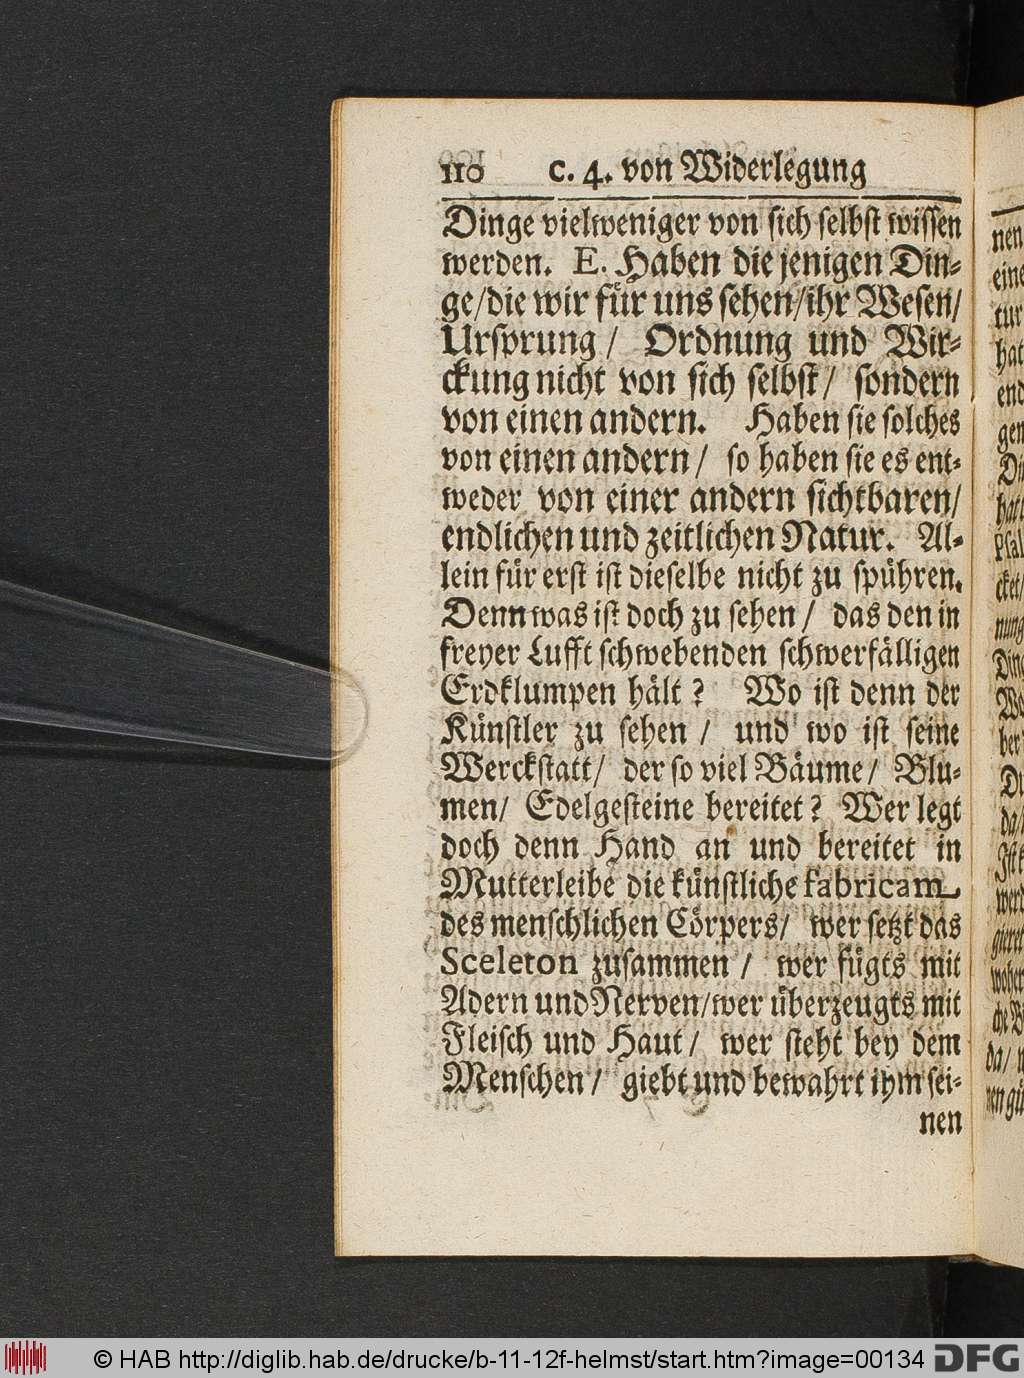 110 c. 4. von Widerlegung
Dinge vielweniger von sich selbst wissen
werden. E. Haben die jenigen Din-
ge/die wir für uns sehen/ihr Wesen/
Ursprung/ Ordnung und Wir-
ckung nicht von sich selbst/ sondern
von einen andern. Haben sie solches
von einen andern/ so haben sie es ent-
weder von einer andern sichtbaren/
endlichen und zeitlichen Natur. Al-
lein für erst ist dieselbe nicht zu spühren.
Denn was ist doch zu sehen/ das den in
freyer Lufft schwebenden schwerfälligen
Erdklumpen hält? Wo ist denn der
Künstler zu sehen/ und wo ist seine
Werckstatt/ der so viel Bäume/ Blu-
men/ Edelgesteine bereitet? Wer legt
doch denn Hand an und bereitet in
Mutterleibe die künstliche fabricam
des menschlichen Cörpers/ wer setzt das
Sceleton zusammen/ wer fügts mit
Adern und Nerven/wer überzeugts mit
Fleisch und Haut/ wer steht bey dem
Menschen/ giebt und bewahrt ihm sei-
nen
nen
eine
tur
hat
end
gen
© HAB http://diglib.hab.de/drucke/b-11-12f-helmst/start.htm?image=00134 DFG